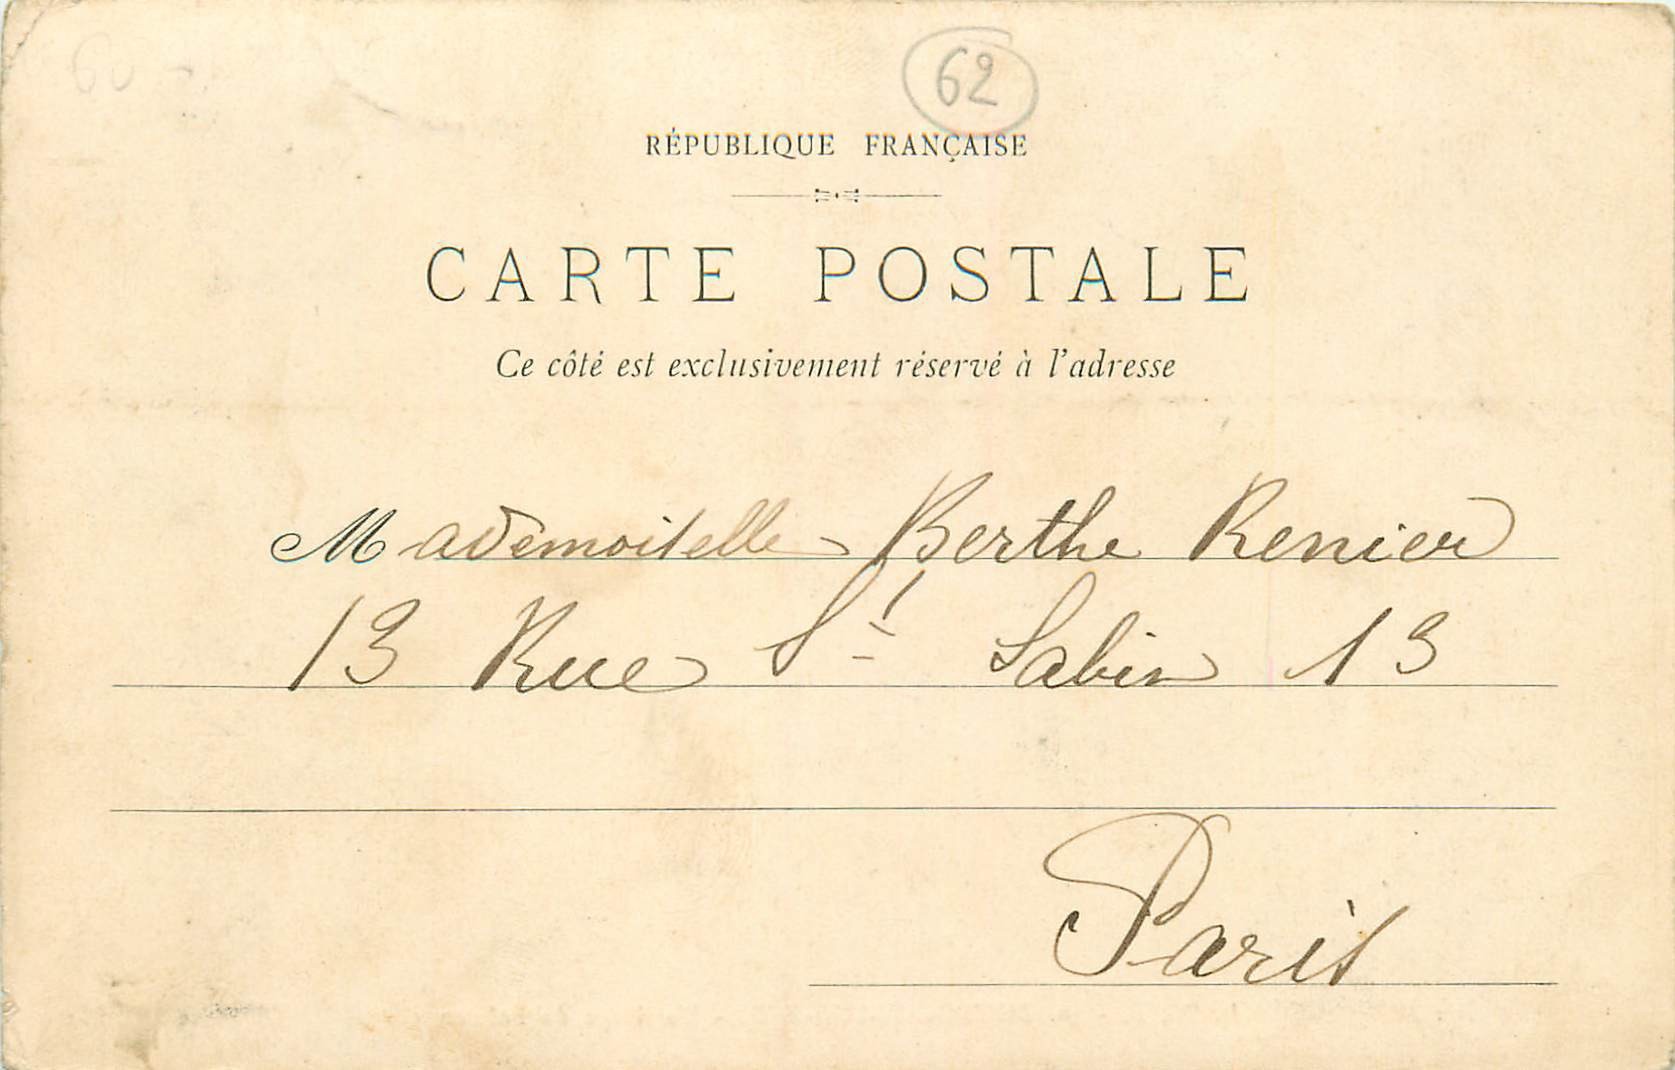 62
RÉPUBLIQUE FRANÇAISE
CARTE POSTALE
Ce côté est exclusivement réservé à l'adresse
Mademoiselle Berthe Renier
13 Rue St Sabin 13
Paris